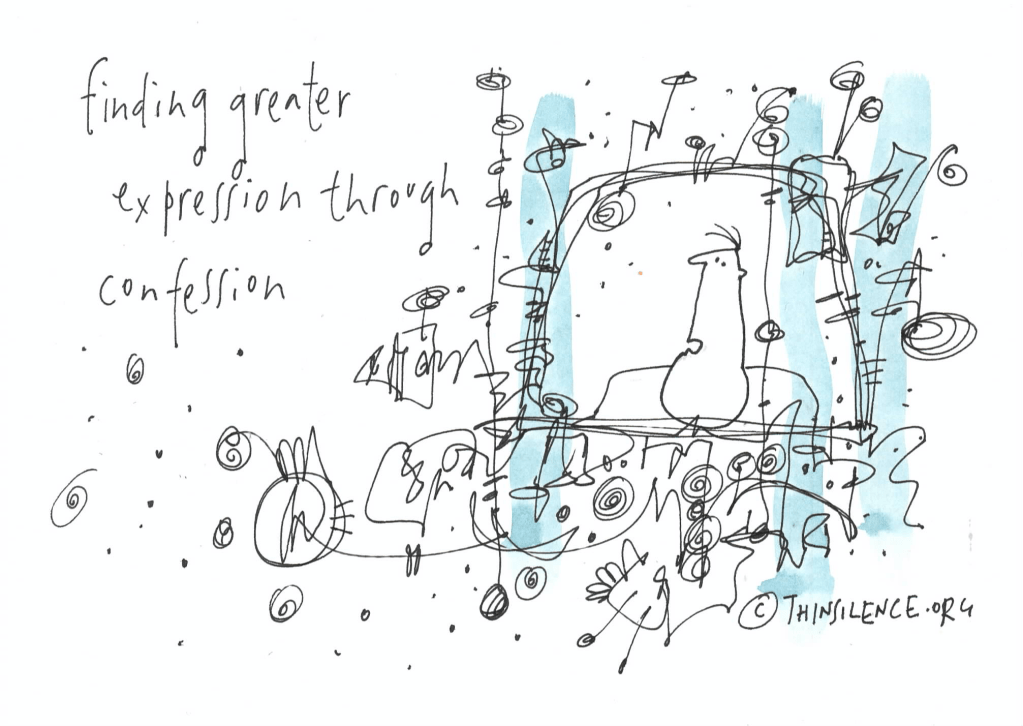 finding greater
expression through
confession
© THINSILENCE.ORG